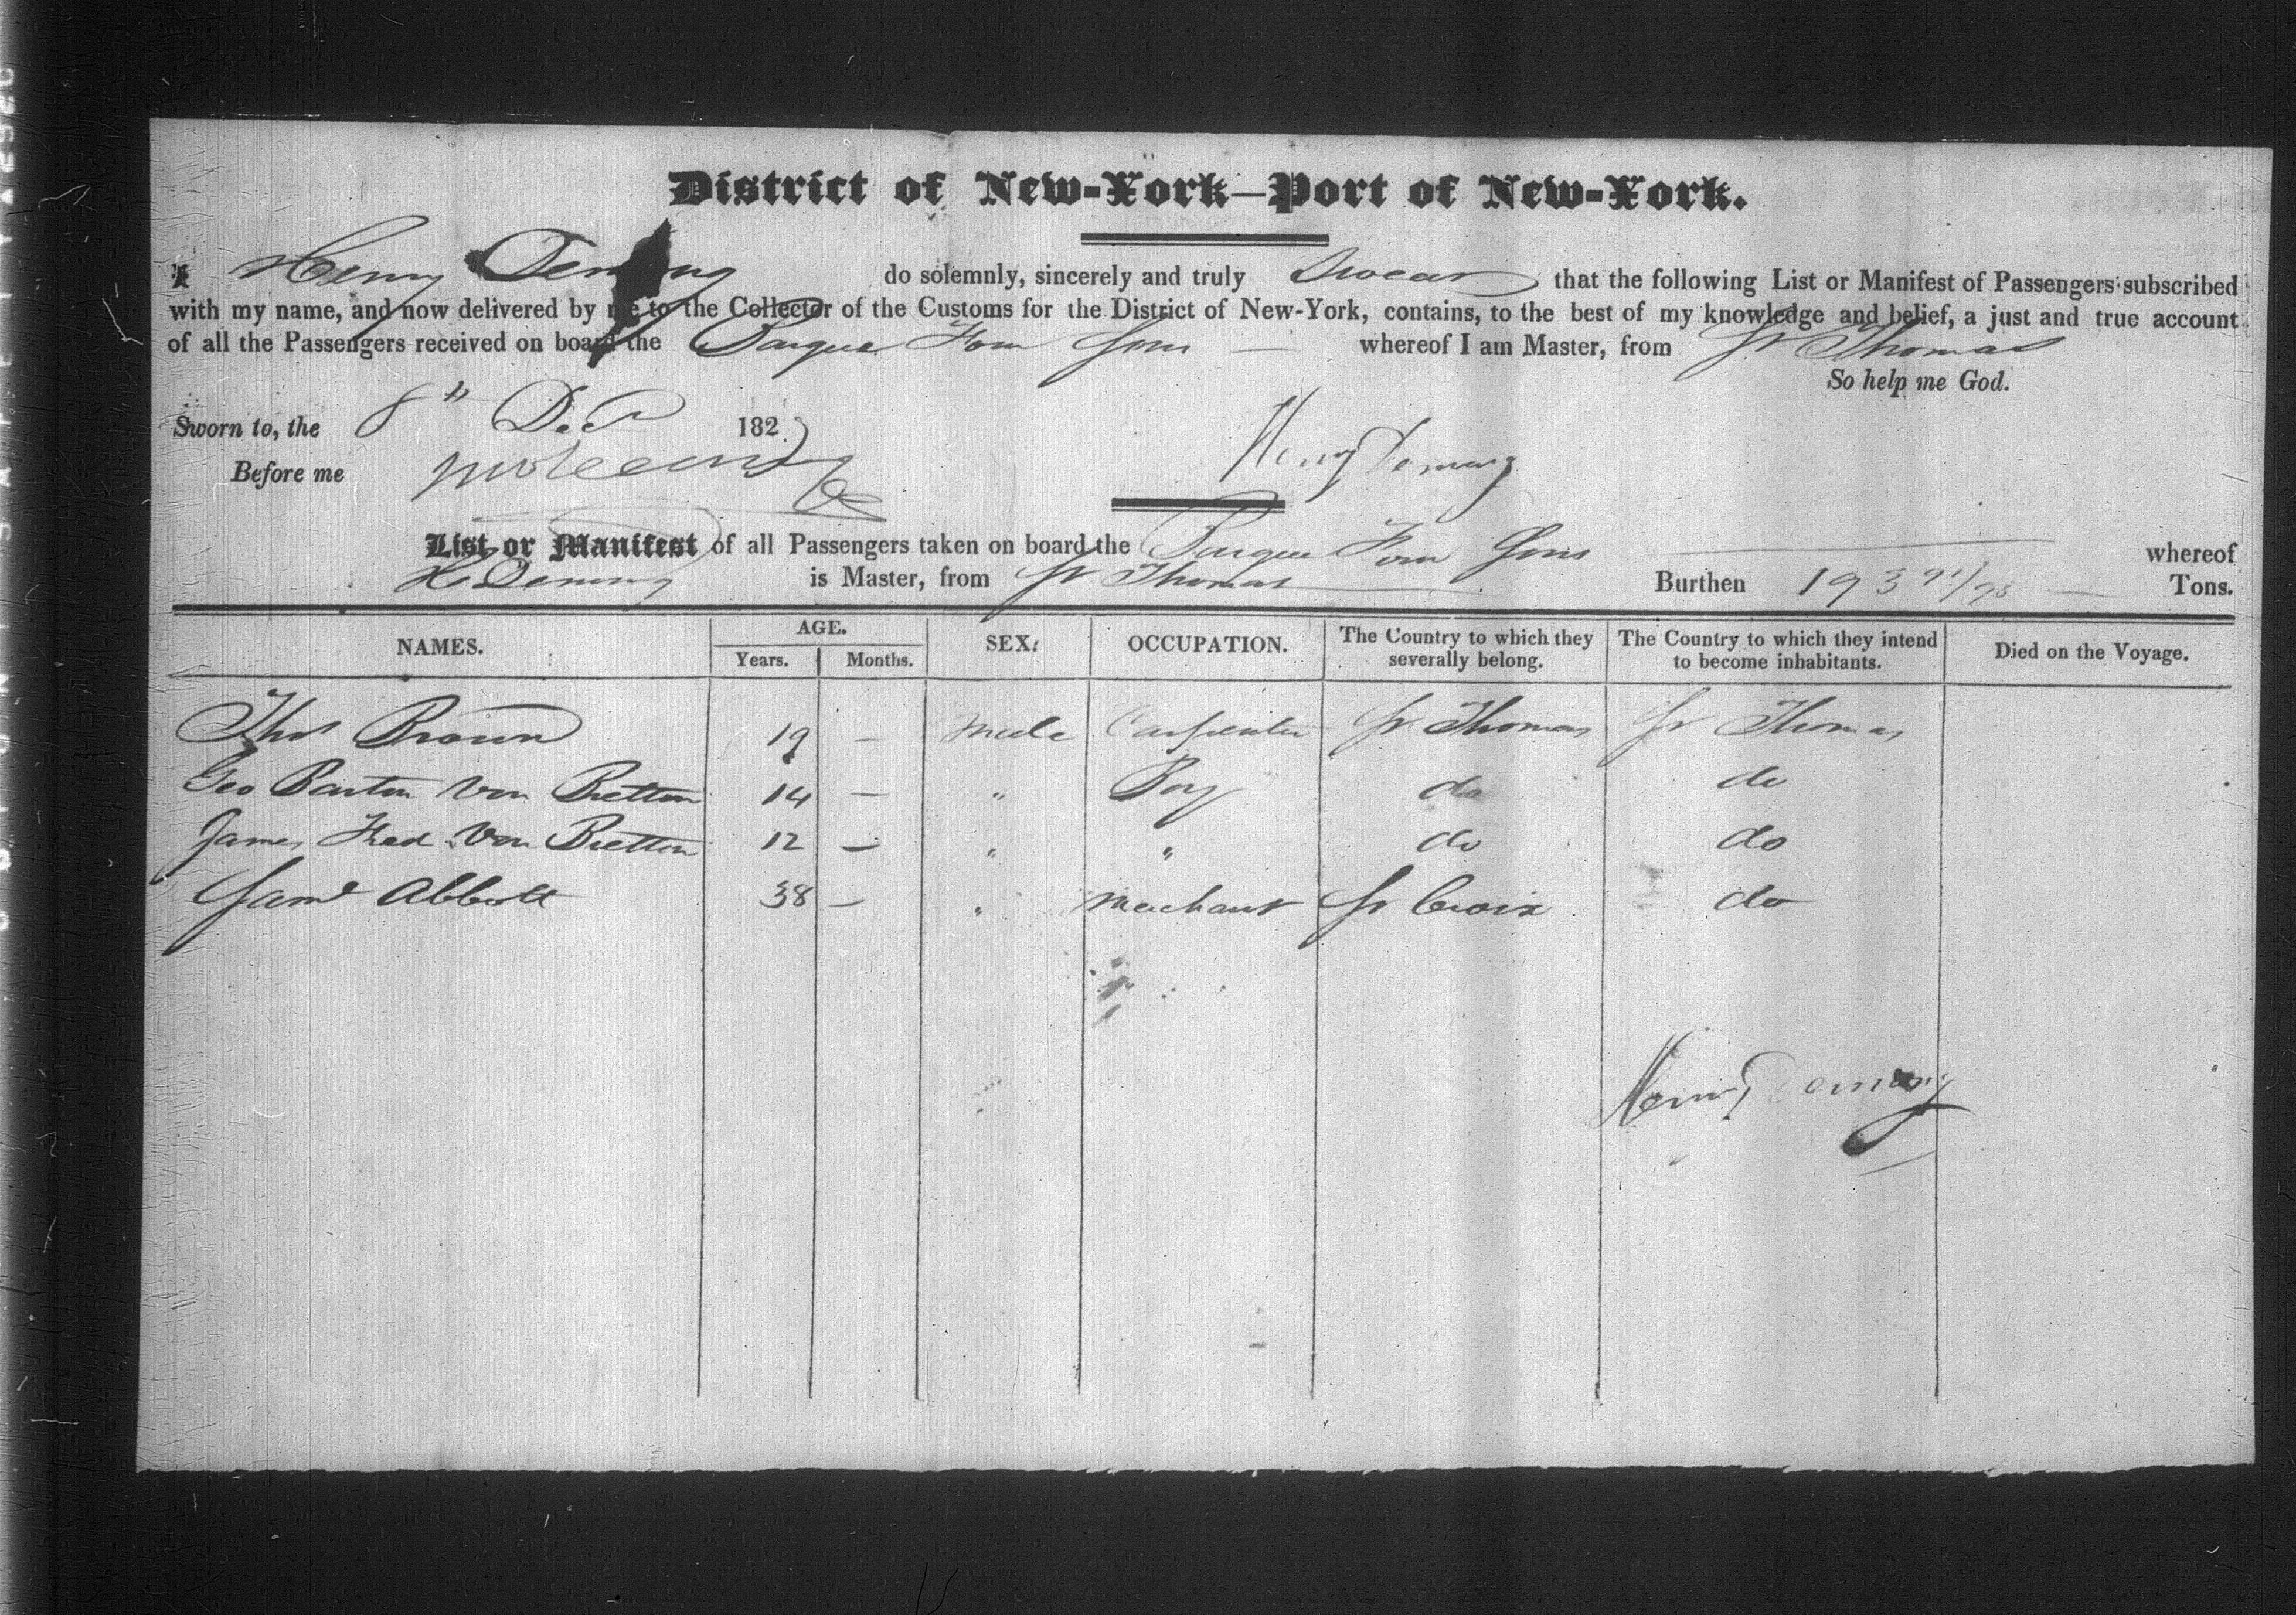 District of New-York—Port of New-York.
I Henry Deming do solemnly, sincerely and truly Swear that the following List or Manifest of Passengers subscribed
with my name, and now delivered by me to the Collector of the Customs for the District of New-York, contains, to the best of my knowledge and belief, a just and true account
of all the Passengers received on board the Barque Four Sons — whereof I am Master, from St Thomas
So help me God.
Sworn to, the 8th Dec 182
Before me
Henry Deming
List or Manifest of all Passengers taken on board the Barque Four Sons whereof
H Deming is Master, from St Thomas Burthen 193 91/95 Tons.
NAMES. AGE. Years. Months. SEX. OCCUPATION. The Country to which they severally belong. The Country to which they intend to become inhabitants. Died on the Voyage.
Thos Brown 19 — Male Carpenter St Thomas St Thomas
Geo Barton Von Bretton 14 — " Boy do do
James Fred Von Bretton 12 — " " do do
Saml Abbott 38 — " Merchant St Croix do
Henry Deming